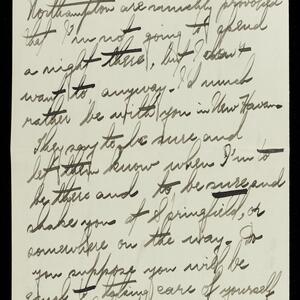 Northampton are muchly provoked
that I'm not going to spend
a night there, but I don't
want to anyway. I'd much
rather be with you in New Haven.
They say to be sure and
let them know when I'm to
be there and to be sure and
shake you at Springfield, or
somewhere on the way. Do
you suppose you will be
to taking care of yourself